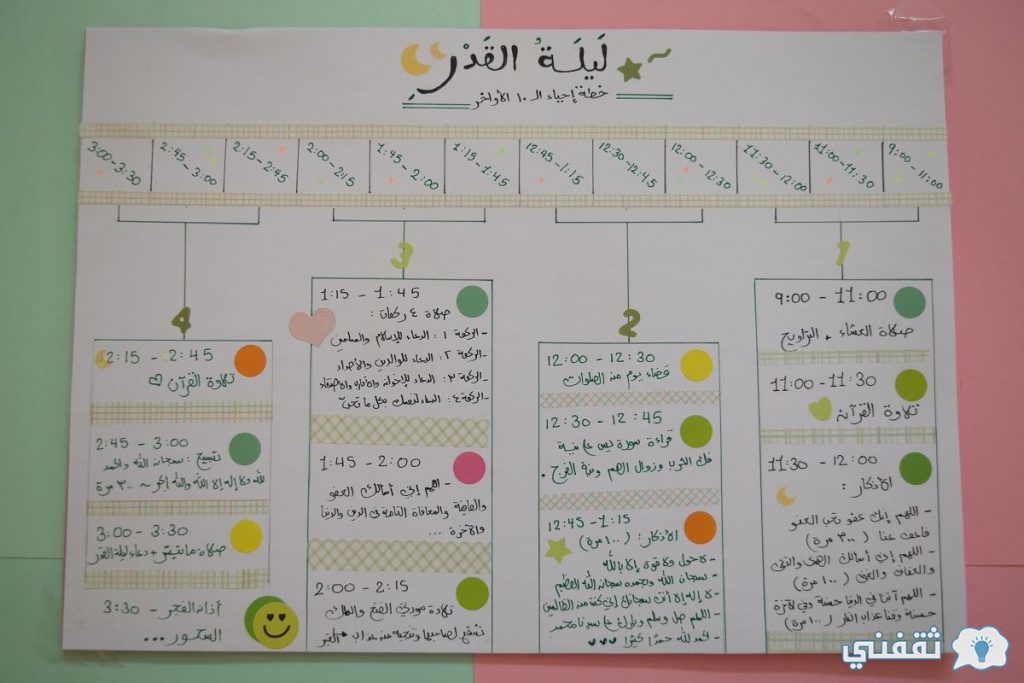 لَيلَةُ القَدْر
خطة إحياء الـ ١٠ الأواخر
9:00 - 11:00
11:00 - 11:30
11:30 - 12:00
12:00 - 12:30
12:30 - 12:45
12:45 - 1:15
1:15 - 1:45
1:45 - 2:00
2:00 - 2:15
2:15 - 2:45
2:45 - 3:00
3:00 - 3:30
1
9:00 - 11:00
صلاة العشاء + التراويح
11:00 - 11:30
تلاوة القرآن
11:30 - 12:00
الأذكار :
- اللهم إنك عفو تحب العفو
فاعف عنا ( ٣٠٠ مرة )
- اللهم إني أسألك الهدى والتقى
والعفاف والغنى ( ١٠٠ مرة )
- اللهم آتنا في الدنيا حسنة وفي الآخرة
حسنة وقنا عذاب النار ( ١٠٠ مرة )
2
12:00 - 12:30
قضاء يوم من الصلوات
12:30 - 12:45
قراءة سورة يس على نية
فك الكرب وزوال الهم ونية الفرج .
12:45 - 1:15
الأذكار : ( ١٠٠ مرة )
- لا حول ولا قوة إلا بالله
- سبحان الله وبحمده سبحان الله العظيم
- لا إله إلا أنت سبحانك إني كنت من الظالمين
- اللهم صل وسلم وبارك على سيدنا محمد
- الحمد لله حمدًا كثيرًا
3
1:15 - 1:45
صلاة ٤ ركعات :
- الركعة ١ : الدعاء للإسلام والمسلمين
- الركعة ٢ : الدعاء للوالدين والأجداد
- الركعة ٣ : الدعاء للإخوة والأقارب والأصدقاء
- الركعة ٤ : الدعاء لنفسك بكل ما تحب
1:45 - 2:00
- اللهم إني أسألك العفو
والعافية والمعافاة التامة في الدين والدنيا
والآخرة ...
2:00 - 2:15
تلاوة سورتي الفتح والملك
تشفع لصاحبها وتنجيه من عذاب القبر
4
2:15 - 2:45
تلاوة القرآن
2:45 - 3:00
تسبيح : سبحان الله والحمد
لله ولا إله إلا الله والله أكبر ~ ٣٠٠ مرة
3:00 - 3:30
صلاة ما تيسّر + دعاء ليلة القدر
أذان الفجر - 3:30
السحور ...
ثقفني